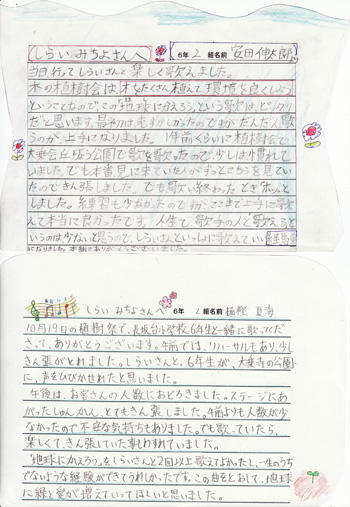 しらい みちよさんへ 6年 2 組名前 安田 伸太郎
当日行ってしらいさんと楽しく歌えました。
木の植樹会は、木をたくさん植えて環境を良くしよう
ということなので、この「地球にかえろう」という歌は、ピッタリ
だと思います。最初はむずかしかったのですがだんだん歌
うのが、上手になりました。1年前くらいに植樹会で
大乗会丘ゆう公園で歌を歌ったので、少しは慣れて
いました。でも本番見に来ていた人がずっとこちらを見てい
たのできん張しました。でも歌い終わったときホッと
しました。練習も少なかったのですが、ここまで上手に歌
えて本当に良かったです。人生で、歌手の人と歌えると
いうのは少ないと思うので、しらいさんといっしょに歌えていい
しらい みちよさんへ 6年 2 組名前 夏海
10月19日の植樹祭で、長坂台小学校6年生と一緒に歌ってくだ
さって、ありがとうございます。午前では、リハーサルもあり、少し
きん張がとれました。しらいさんと、6年生が、大乗寺の公園
に、声をひびかせれたと思いました。
午後は、お客さんの人数におどろきました。ステージにあ
がったしゅんかん、とてもきん張しました。午前よりも人数が少
なかったので不安な気持ちもありました。でも歌っていたら、
楽しくて、きん張していた事もわすれていました。
「地球にかえろう」をしらいさんと2回以上歌えてよかったし、一生のうち
でないような経験ができてうれしかったです。この曲をとおして、地球
に緑と愛が増えていってほしいと思いました。